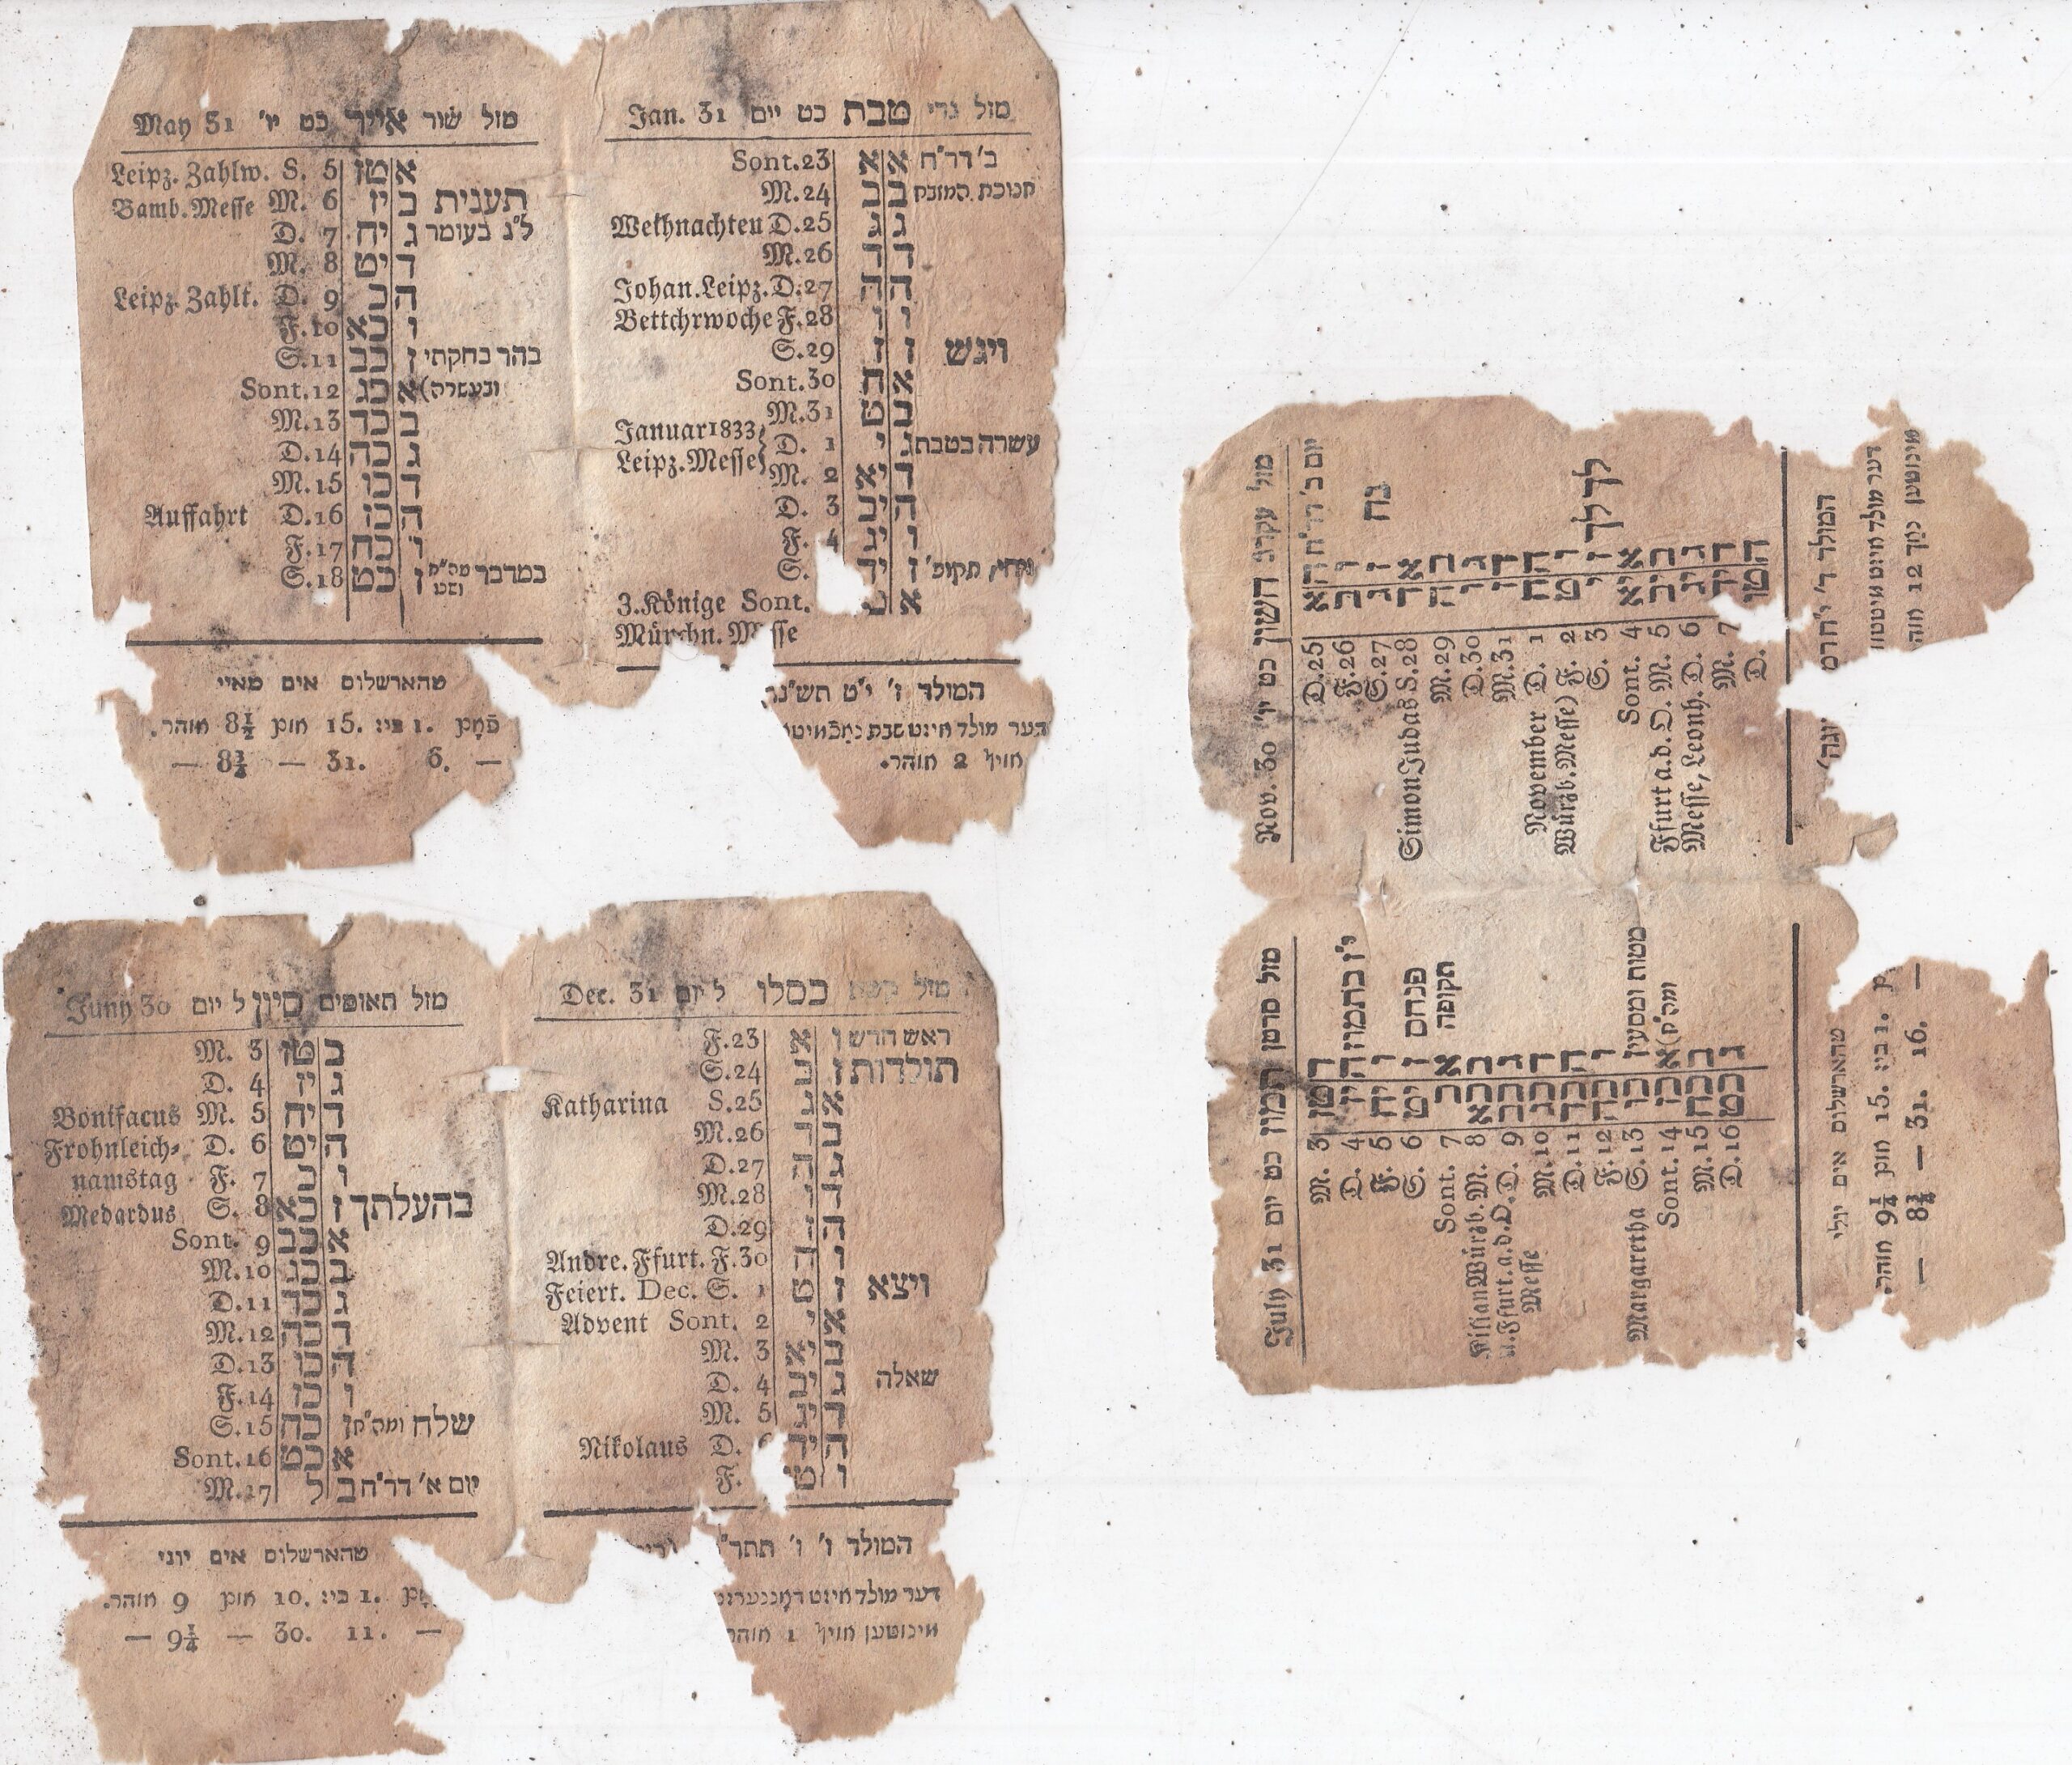 May 31 מזל שור אייר כט יו'
Leipz. Zahlw. S. 5 טז א
Bamb. Messe M. 6 יז ב תענית
D. 7 יח ג ל"ג בעומר
M. 8 יט ד
Leipz. Zahlt. D. 9 כ ה
F. 10 כא ו
S. 11 כב ז בהר בחקתי
Sont. 12 כג א (ובעשרה
M. 13 כד ב
D. 14 כה ג
M. 15 כו ד
Auffahrt D. 16 כז ה
F. 17 כח ו
S. 18 כט ז במדבר
טהארשלוס אים מאיי
1. ביז 15. 8½ אוהר.
— 8¾ — 31. 6. —
Jan. 31 מזל גדי טבת כט יום
Sont. 23 א א ב' דר"ח
M. 24 ב ב חנוכת המזבח
Weihnachten D. 25 ג ג
M. 26 ד ד
Johan. Leipz. D. 27 ה ה
Bettchrwoche F. 28 ו ו
S. 29 ז ז ויגש
Sont. 30 ח א
M. 31 ט ב
Januar 1833 D. 1 י ג עשרה בטבת
Leipz. Messe M. 2 יא ד
D. 3 יב ה
F. 4 יג ו
S. יד ז ויחי, תקופ'
3. Könige Sont. א
Münchn.
המולד ז' י"ט
דער מולד איזט שבת
2 אוהר.
Juny 30 מזל תאומים סיון ל יום
M. 3 טז ב
D. 4 יז ג
Bonifacus M. 5 יח ד
Frohnleich- D. 6 יט ה
namstag F. 7 כ ו
Medardus S. 8 כא ז בהעלתך
Sont. 9 כב א
M. 10 כג ב
D. 11 כד ג
M. 12 כה ד
D. 13 כו ה
F. 14 כז ו
S. 15 כח ז שלח ומה"ח
Sont. 16 כט א
M. 17 ל ב יום א' דר"ח
טהארשלוס אים יוני
1. ביז 10. 9 אוהר.
— 9¼ — 30. 11. —
Dec. 31 מזל קשת כסלו ל יום
F. 23 א ו ראש חדש
S. 24 ב ז תולדות
Katharina S. 25 ג א
M. 26 ד ב
D. 27 ה ג
M. 28 ו ד
D. 29 ז ה
Andre. Ffurt. F. 30 ח ו
Feiert. Dec. S. 1 ט ז ויצא
Advent Sont. 2 י א
M. 3 יא ב
D. 4 יב ג שאלה
M. 5 יג ד
Nikolaus D. יד ה
F. טו ו
המולד ו' ו'
דער מולד איזט
מינוטען 1 אוהר
Nov. 30 מזל עקרב חשון כט יו'
D. 25 א ה יום ב' דר"ח
F. 26 ב ו
S. 27 ג ז נח
Simon Judas S. 28 ד א
M. 29 ה ב
D. 30 ו ג
M. 31 ז ד
November D. 1 ח ה
Würzb. Messe) F. 2 ט ו
S. 3 י ז לך לך
Sont. 4 יא א
Ffurt a. d. O. M. 5 יב ב
Messe, Leonh. D. 6 יג ג
M. 7 יד ד
D. טו ה
המולד
דער מולד איזט
מינוטען נאך 12 אוה
July 31 מזל סרטן תמוז כט יום
M. 3 טז ד
D. 4 יז ה י"ז בתמוז
F. 5 יח ו
S. 6 יט ז פנחס
Sont. 7 כ א תקופה
Kilian Würzb. M. 8 כא ב
u. Ffurt. a. d. O. D. 9 כב ג
Messe M. 10 כג ד
D. 11 כד ה
F. 12 כה ו
Margaretha S. 13 כו ז מטות ומסעי
Sont. 14 כז א (ומה"ח
M. 15 כח ב
D. 16 כט ג
טהארשלוס אים יולי
1. ביז 15. 9¼ אוהר.
— 8¾ — 31. 16. —